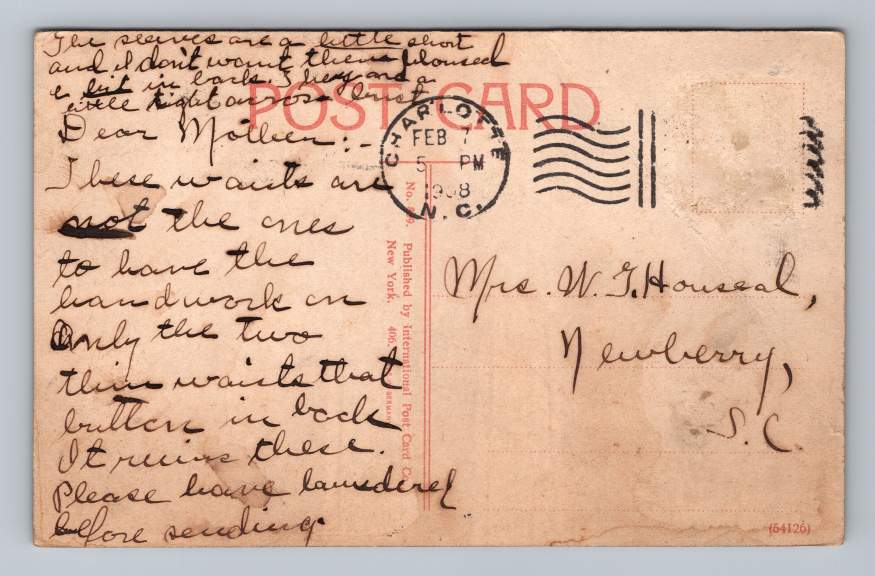 The sleeves are a little short
and I don't want them bloused
a bit in back. They are a
little tight across bust
POST CARD
Dear Mother:-
These waists are
not the ones
to have the
handwork on
Only the two
thin waists that
button in back
It ruins these.
Please have laundered
before sending.
CHARLOTTE
FEB 7
5 PM
1908
N.C.
No.
Published by International Post Card Co.
New York. 406.
GERMANY
Mrs. W. G. Houseal,
Newberry,
S.C.
(54126)